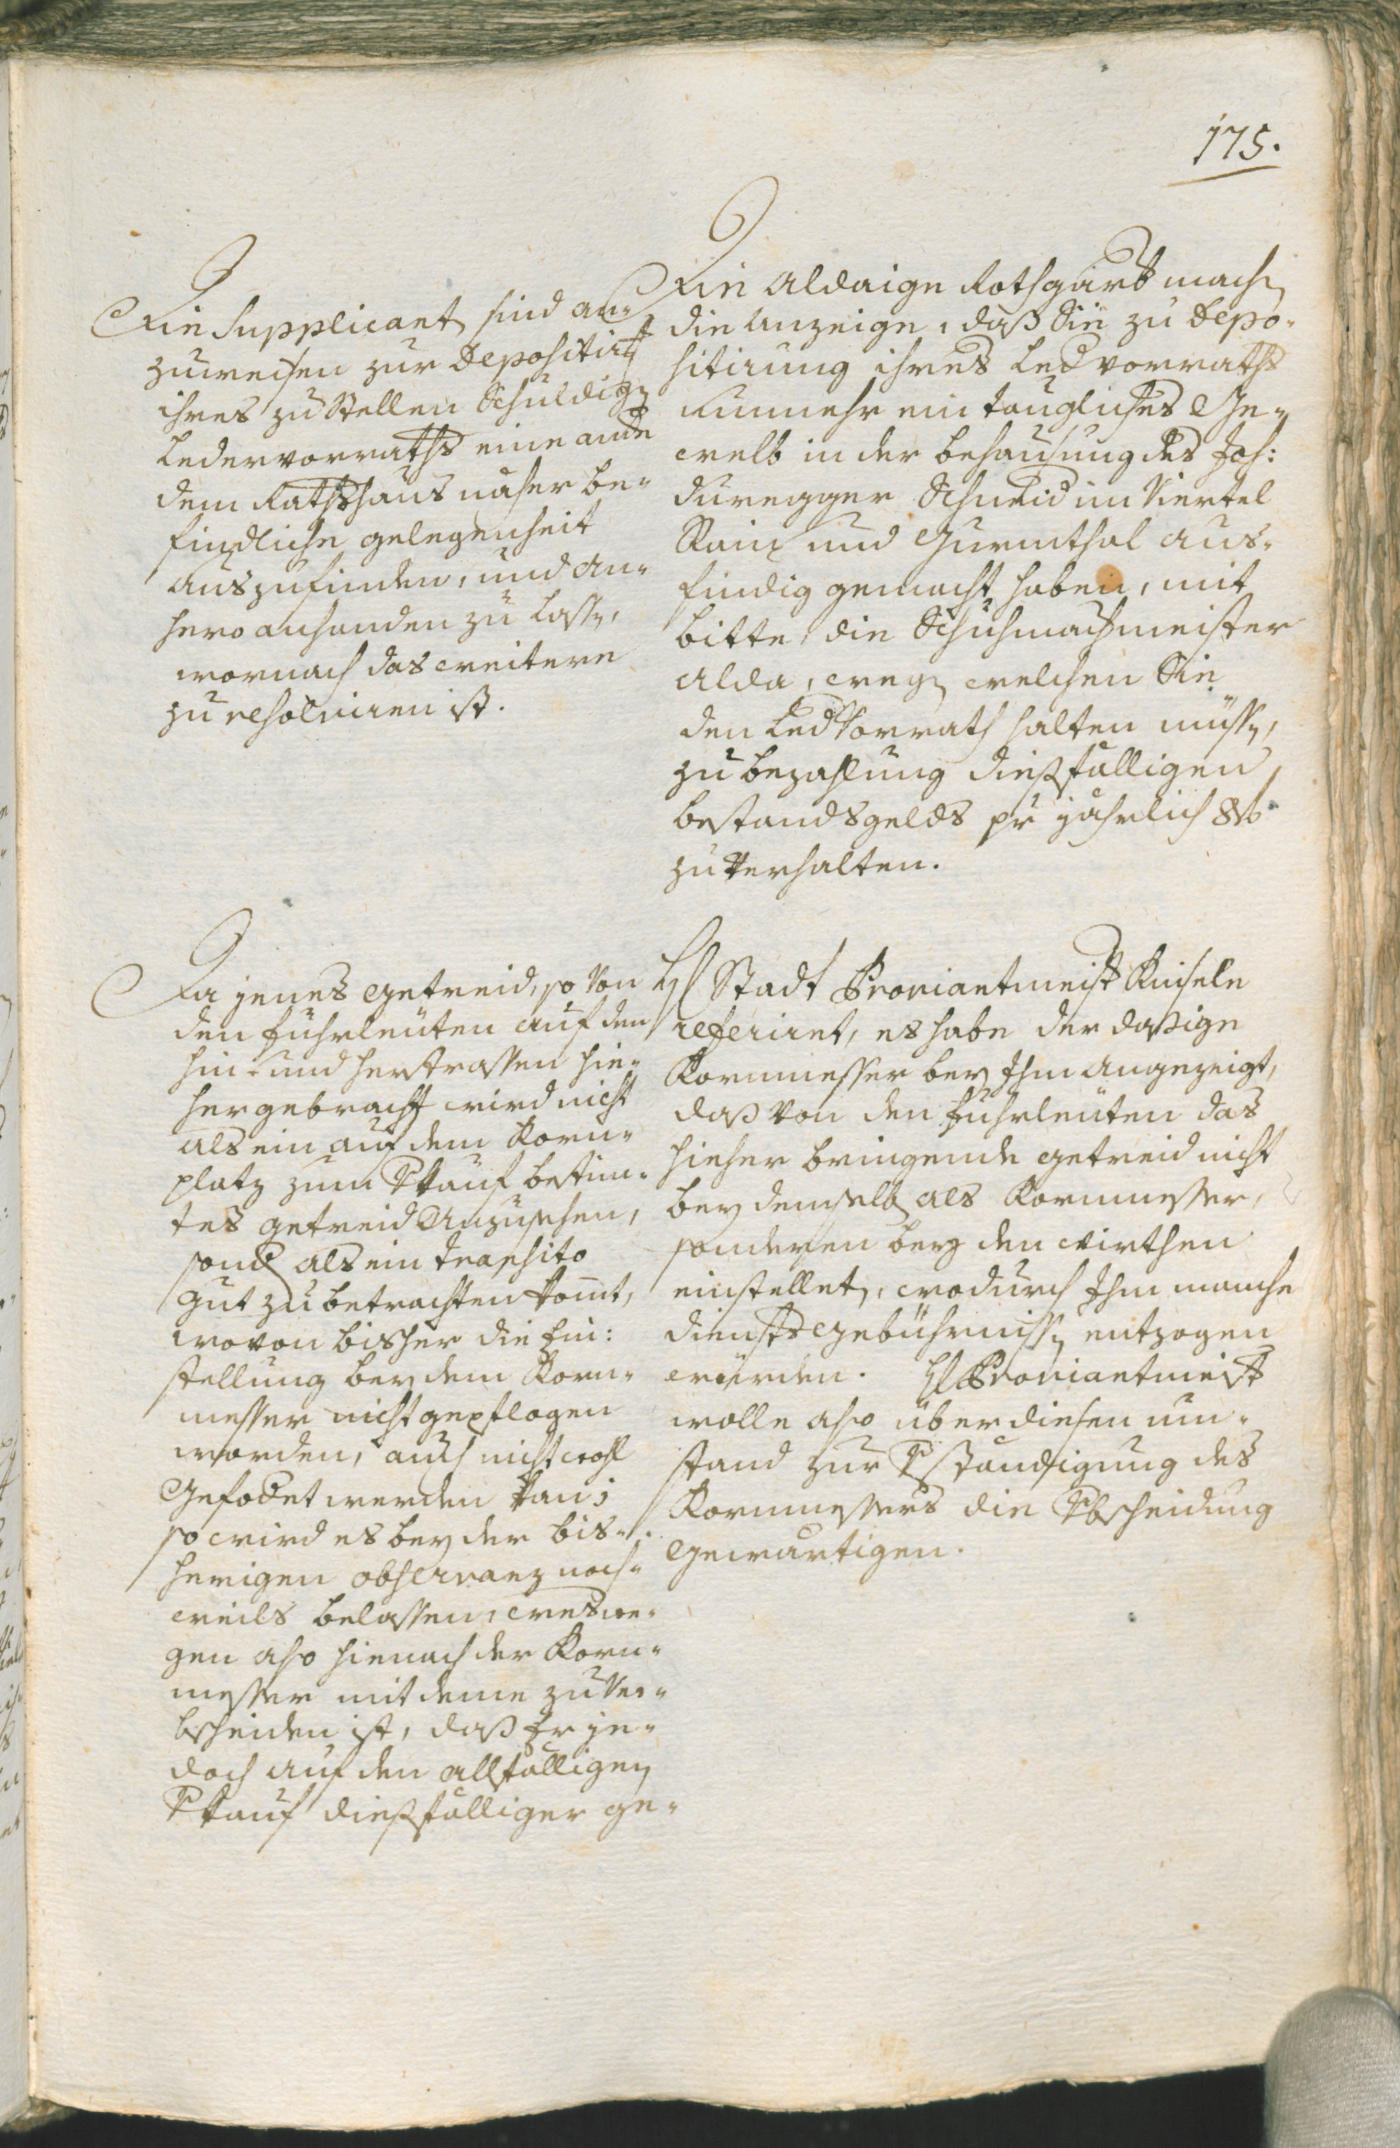 175.
Die Supplicanten sind an-
zuweisen zur Depositirung
ihres zu stellen schuldigen
Ledervorraths eine ande
dem Rathshaus näher be-
findliche gelegenheit
auszufinden, und an-
hero anhanden zu lassen,
wornach das weitere
zu resolviren ist.
Die aldaige Rothgärber machen
die Anzeige, daß Sie zu Depo-
sitirung ihres Ledervorraths
Nunmehr ein taugliches Ge-
welb in der behausung des Joh:
Duregger Schmid im Viertel
Rain und Gurmthal aus-
findig gemacht haben, mit
bitte, die Schuhmachermeister
alda, wegen welchen Sie
den Ledervorrath halten müssen,
zu bezahlung dießfälligen
bestandsgelds pr jährlich 8 f
zu verhalten.
Da jenes getreid, so von
den fuhrleüten auf den
hin und herstrassen hie-
her gebracht wird nicht
als ein auf dem Korn-
platz zum Verkauf bestim-
tes getreid Anzusehen,
sondern als ein transito
gut zu betrachten komt,
wovon bisher die Ein:
stellung bey dem Korn-
messer nicht gepflogen
worden, auch nicht wohl
Gefodert werden kan;
so wird es bey der bis-
herigen observanz noch-
weils belassen, weswe-
gen also hienach der Korn-
messer mit deme zu ver-
bscheiden ist, daß Er je-
doch auf den allfälligen
Verkauf dießfälliger ge-
H Stadt Proviantmeister Kneisele
referiret, es habe der dasige
Kornmesser bey Ihm angezeigt,
daß von den fuhrleüten das
hieher bringende getreid nicht
bey demselben als Kornmesser,
sonderen bey den wirthen
einstellet, wodurch Ihm manche
dienstsgebührnissen entzogen
würden. H Proviantmeister
wolle also über diesen um-
stand zur Verständigung des
Kornmessers die Verbscheidung
gewärtigen.